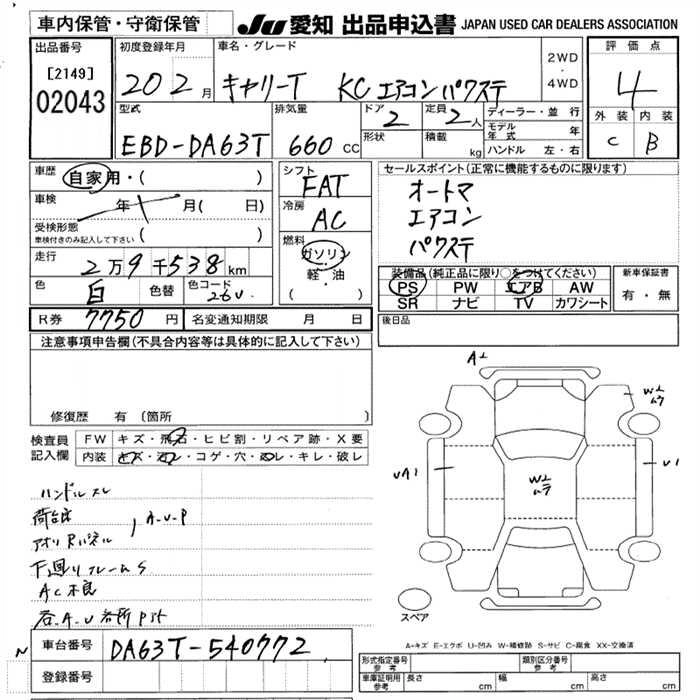 車内保管・守衛保管
JU 愛知 出品申込書 JAPAN USED CAR DEALERS ASSOCIATION
出品番号
[2149]
02043
初度登録年月
20 2月
車名・グレード
キャリーT KC エアコン パワステ
2WD
・
4WD
評価点
4
外装 内装
C B
型式
EBD-DA63T
排気量
660 CC
ドア
2
形状
定員
2人
積載
kg
ディーラー・並行
モデル年式 年
ハンドル 左・右
車歴
自家用・( )
車検
年 月( 日)
受検形態
車検付きのみ記入して下さい ( )
走行
2万9千538km
色
白 色替
色コード
26U
シフト
FAT
冷房
AC
燃料
ガソリン
・
軽・油
( )
セールスポイント(正常に機能するものに限ります)
オートマ
エアコン
パワステ
装備品(純正品に限り○をつけてください)
PS PW エアB AW
SR ナビ TV カワシート
新車保証書
有・無
R券 7750円
名変通知期限 月 日
後日品
注意事項申告欄(不具合内容等は具体的に記入して下さい)
修復歴 有(箇所 )
検査員記入欄
FW キズ・飛石・ヒビ割・リペア跡・X要
内装 キズ・汚レ・コゲ・穴・ヌレ・キレ・破レ
ハンドルスレ
荷台床
アオリRパネル
A-U-P
下回リフレームS
AC不良
各A-U各所P跡
A1
W2
ムラ
UA1
W2
ムラ
U1
スペア
A-キズ E-エクボ U-凹み W-補修跡 S-サビ C-腐食 XX-交換済
N
車台番号 DA63T-540772
登録番号
形式指定番号
参考
類別区分番号
参考
車庫証明用
参考
長さ cm 幅 cm 高さ cm